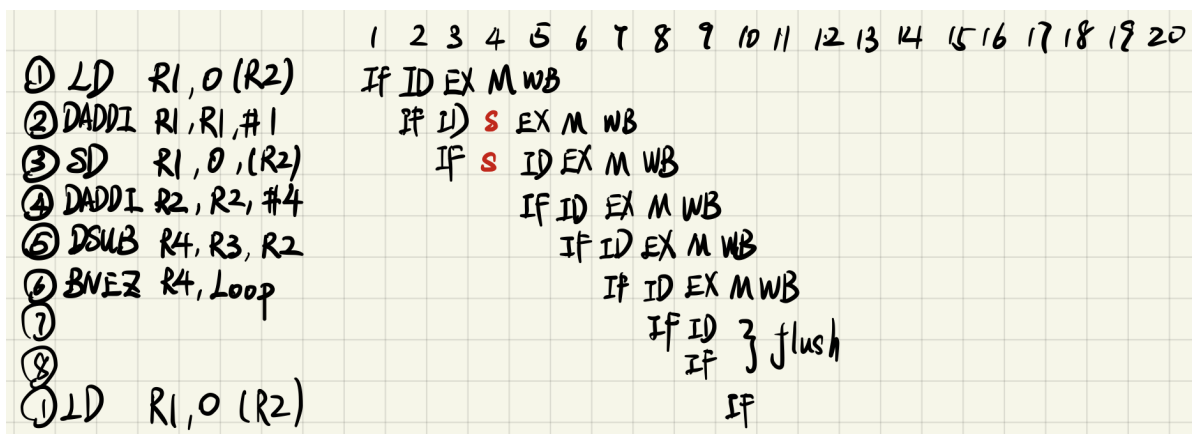 1 2 3 4 5 6 7 8 9 10 11 12 13 14 15 16 17 18 19 20
① LD R1, 0 (R2) If ID EX M WB
② DADDI R1, R1, #1 If ID S EX M WB
③ SD R1, 0, (R2) IF S ID EX M WB
④ DADDI R2, R2, #4 IF ID EX M WB
⑤ DSUB R4, R3, R2 IF ID EX M WB
⑥ BNEZ R4, Loop IF ID EX M WB
⑦ IF ID } flush
⑧ IF
① LD R1, 0 (R2) IF